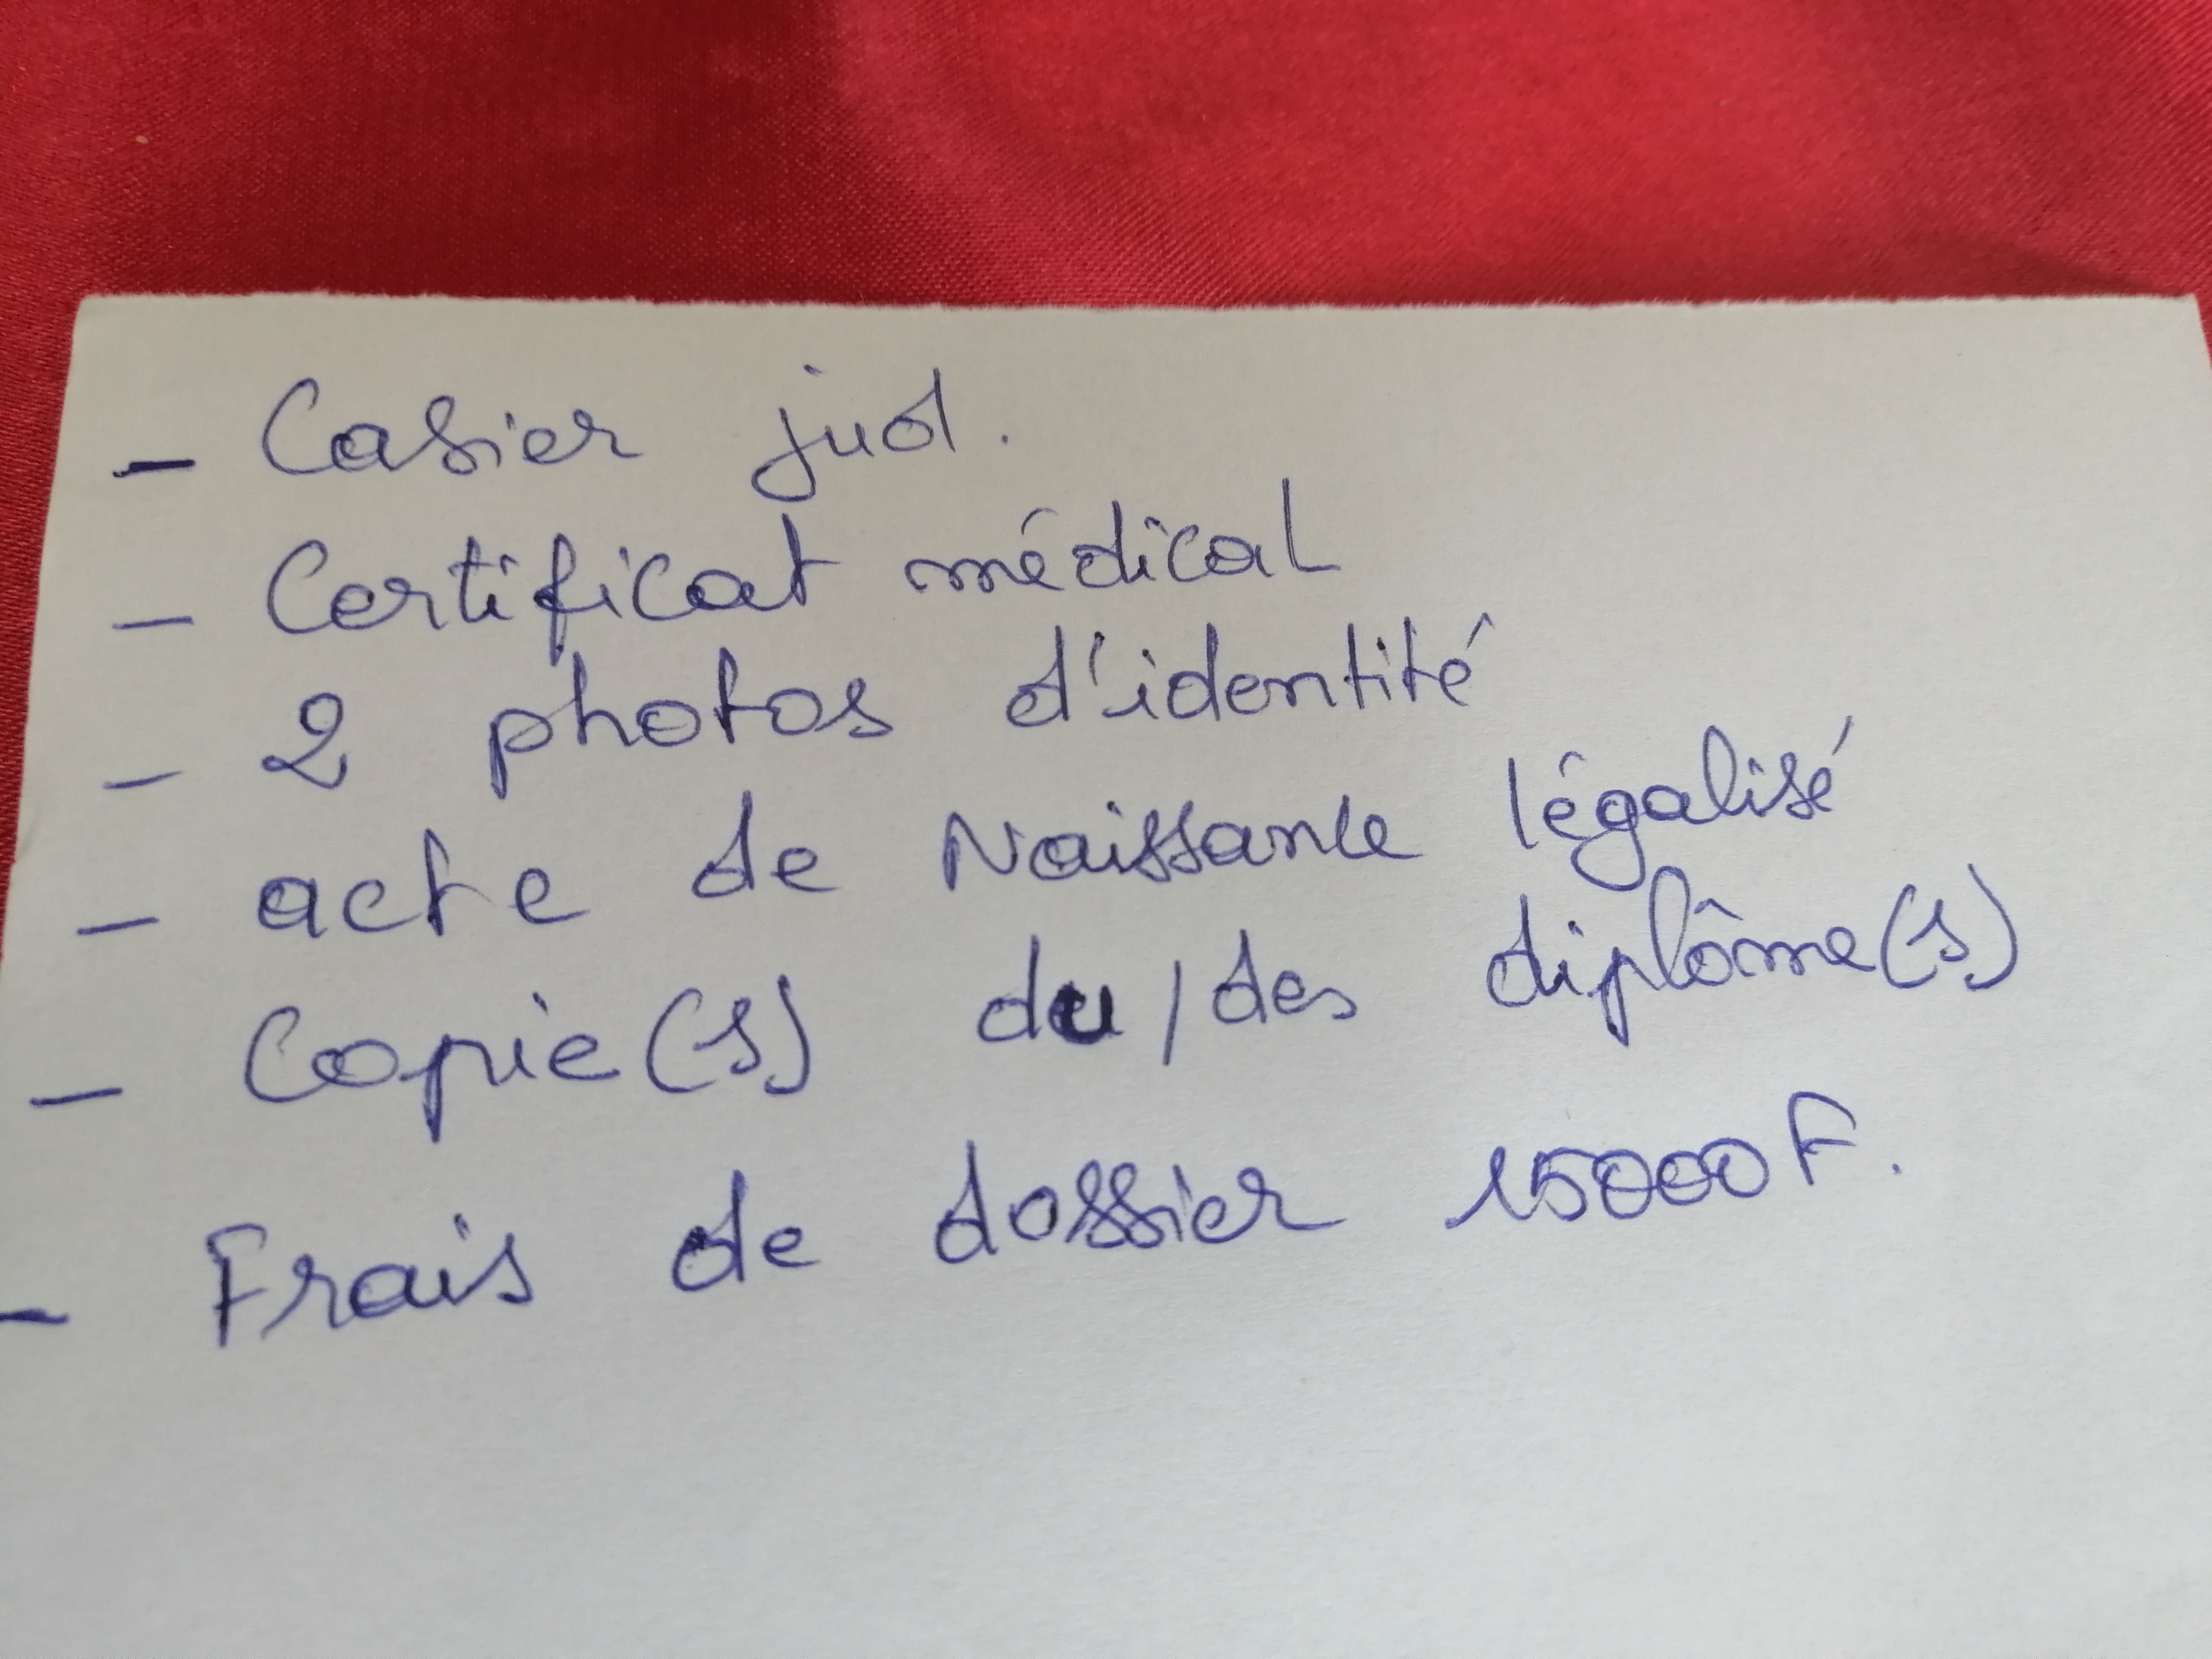 - Casier jud.
- Certificat médical
- 2 photos d'identité
- acte de Naissance légalisé
- Copie(s) du/des diplôme(s)
- Frais de dossier 15000F.